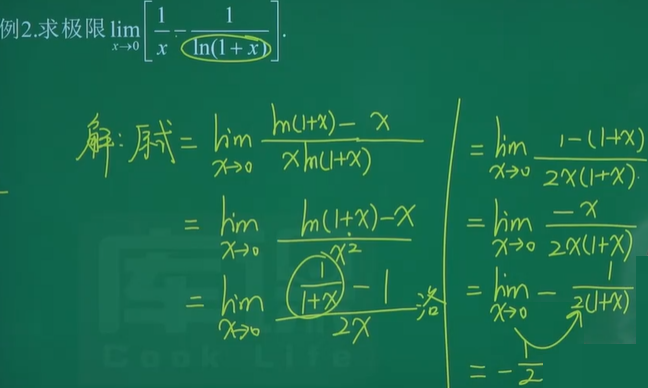 例2.求极限 lim x→0 [1/x - 1/ln(1+x)].
解:原式= lim x→0 (ln(1+x) - x)/(x ln(1+x))
= lim x→0 (ln(1+x) - x)/x²
= lim x→0 (1/(1+x) - 1)/2x 洛
= lim x→0 (1-(1+x))/(2x(1+x))
= lim x→0 -x/(2x(1+x))
= lim x→0 - 1/(2(1+x))
= -1/2
Cook Life